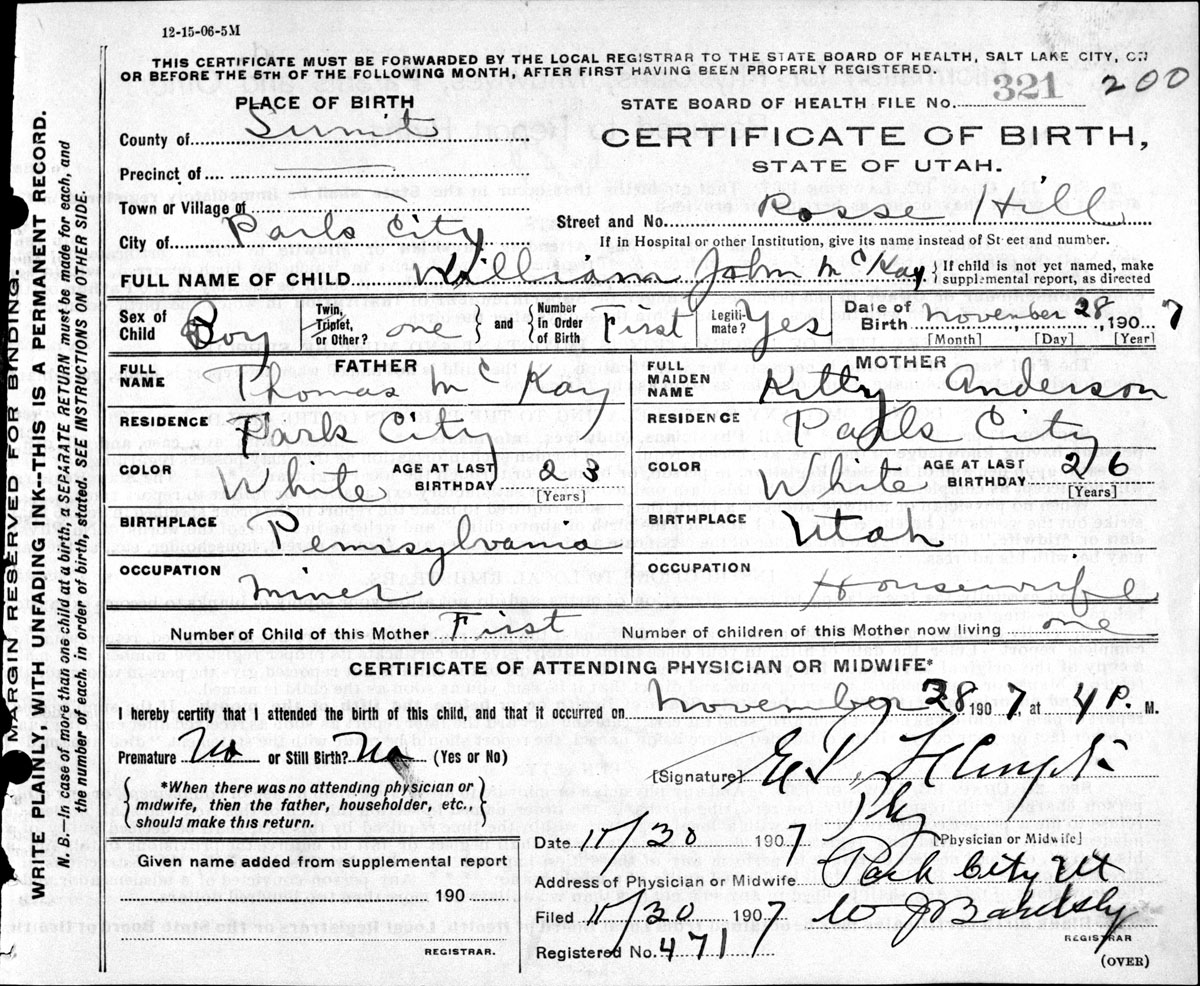 12-15-06-5M
THIS CERTIFICATE MUST BE FORWARDED BY THE LOCAL REGISTRAR TO THE STATE BOARD OF HEALTH, SALT LAKE CITY, ON
OR BEFORE THE 5TH OF THE FOLLOWING MONTH, AFTER FIRST HAVING BEEN PROPERLY REGISTERED.
PLACE OF BIRTH
STATE BOARD OF HEALTH FILE No. 321 200
County of Summit
CERTIFICATE OF BIRTH,
STATE OF UTAH.
Precinct of
Town or Village of
City of Park City
Street and No. Rosse Hill
If in Hospital or other Institution, give its name instead of Street and number.
FULL NAME OF CHILD William John McKay { If child is not yet named, make supplemental report, as directed
Sex of Child Boy Twin, Triplet, or Other? one } and { Number in Order of Birth First Legiti- mate? Yes Date of Birth November 28, 1907
[Month] [Day] [Year]
FATHER
FULL NAME Thomas McKay
MOTHER
FULL MAIDEN NAME Kitty Anderson
RESIDENCE Park City
RESIDENCE Park City
COLOR White AGE AT LAST BIRTHDAY 23 [Years]
COLOR White AGE AT LAST BIRTHDAY 26 [Years]
BIRTHPLACE Pennsylvania
BIRTHPLACE Utah
OCCUPATION Miner
OCCUPATION Housewife
Number of Child of this Mother First Number of children of this Mother now living one
CERTIFICATE OF ATTENDING PHYSICIAN OR MIDWIFE*
I hereby certify that I attended the birth of this child, and that it occurred on November 28 1907, at 4 P. M.
Premature No or Still Birth? No (Yes or No)
{ *When there was no attending physician or
midwife, then the father, householder, etc.,
should make this return. }
[Signature]
Phy
[Physician or Midwife]
Date 11/30 1907
Given name added from supplemental report
190
REGISTRAR.
Address of Physician or Midwife Park City Ut
Filed 11/30 1907 W J Bardsly
REGISTRAR
Registered No. 4717
(OVER)
MARGIN RESERVED FOR BINDING
WRITE PLAINLY, WITH UNFADING INK--THIS IS A PERMANENT RECORD.
N. B.—In case of more than one child at a birth, a SEPARATE RETURN must be made for each, and
the number of each, in order of birth, stated. SEE INSTRUCTIONS ON OTHER SIDE.